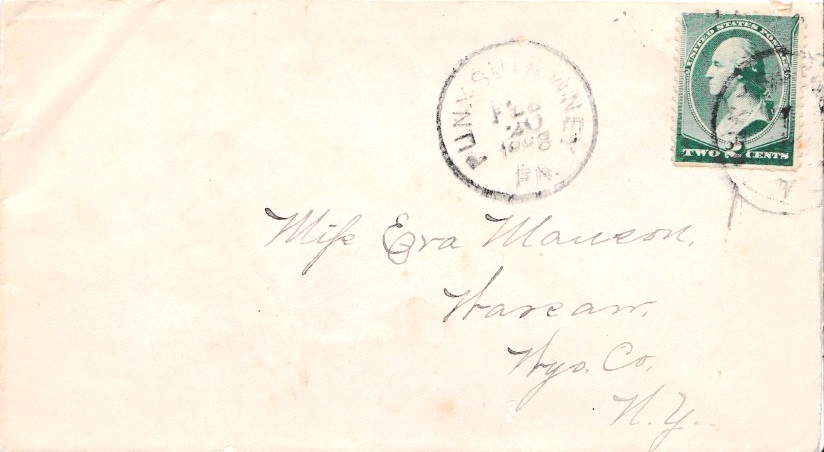 PUNXSUTAWNEY
FEB
20
1888
PM
UNITED STATES POSTAGE
TWO 2 CENTS
Miss Eva Manson,
Warsaw,
Wyo. Co.
N.Y.